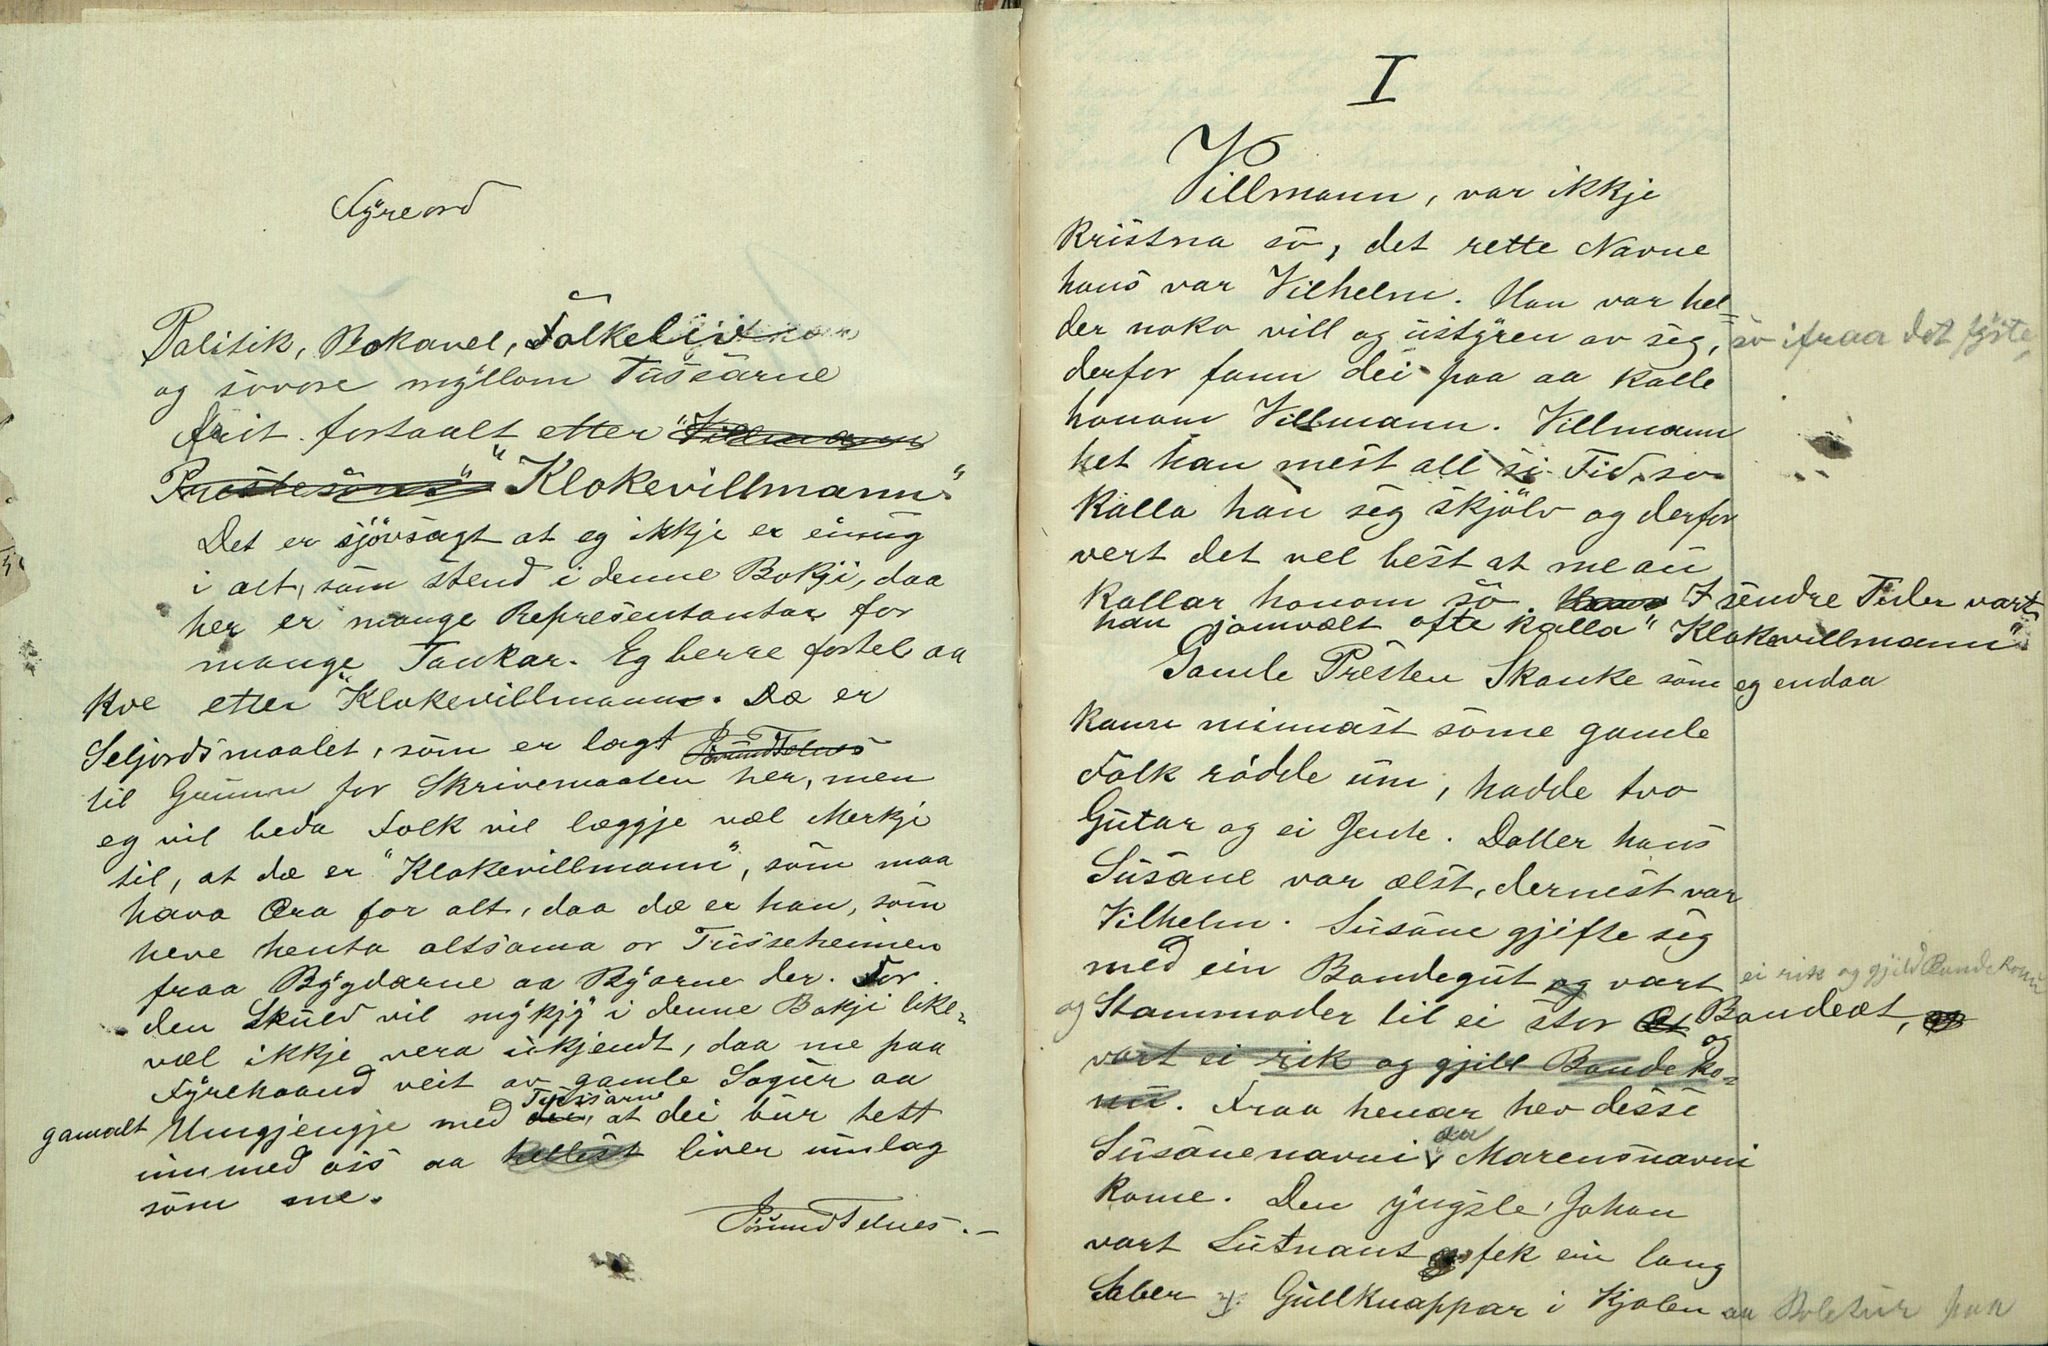 Fyreord
Politik, Bokavel, Folkeliv
og sovore myllom Tussarne
frit fortaalt etter "Villmann
Prestesons" "Klokevillmann"
Det er sjövsagt at eg ikkje er einug
i alt, som stend i denne Bokji, daa
her er mange Representantar for
mange Tankar. Eg berre fortel aa
kve etter "Klokevillmann. Dæ er
Seljordsmaalet, som er lagt
til Grunn for Skrivemaaten her, men
eg vil beda Folk vil læggje væl Merkje
til, at dæ er "Klokevillmann", som maa
hava Æra for alt, daa dæ er han, som
heve henta altsama or Tusseheimen
fraa Bygdarne aa Byarne der. For
den Skuld vil mykjy i denne Bokji like-
væl ikkje vera ukjendt, daa me paa
Fyrehaand veit av gamle Sogur aa
gamalt Umgjengje med dei, Tussarne at dei bur tett
innmed oss aa hellest liver umlag
som me.
Tellnes.-
I
Villmann, var ikkje
kristna so, det rette Navne
hans var Vilhelm. Han var hel-
der noko vill og ustyren av seg, so ifraa det fyste,
derfor fann dei paa aa kalle
honom Villmann. Villmann
het han mest all si Tid, so
kalla han seg skjölv og derfor
vert det vel best at me au
kallar honom so. Hans I sendre Tider vart
han jamvælt ofte kalla "Klokevillmann".
Gamle Presten Skanke som eg endaa
kann minnast some gamle
Folk rödde um, hadde tvo
Gutar og ei Jente. Dotter hans
Susane var ælst, dernest var
Vilhelm. Susane gjifte seg
med ein Bondegut og vart ei rik og gjild Bondekone
og Stammoder til ei stor Æt Bondeæt, og
vart ei rik og gjild Bonde ko-
na. Fraa henar hev disse
Susanenavni aa Marensnavni
kome. Den yngste, Johan
vart Lutnant og fek ein lang
Saber og Gullknappar i Kjolen aa Boletur paa